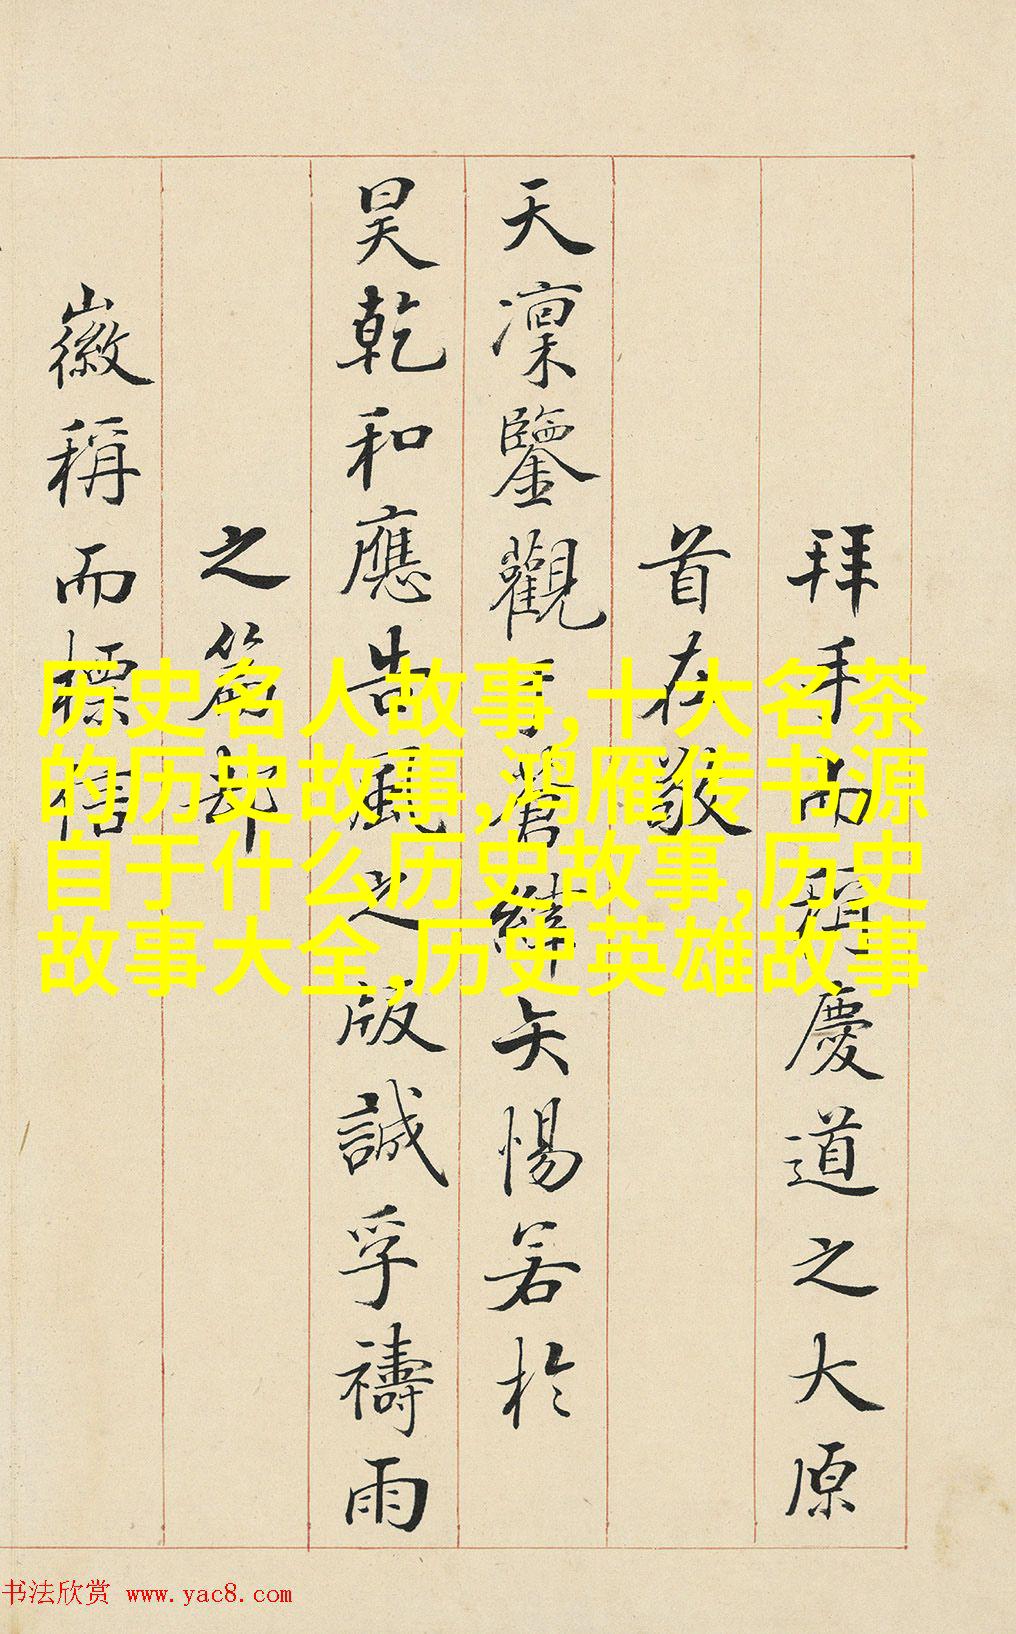 拜手而稱慶道之大原
首在敬
天凜鑒觀於蒼緯矢惕若於
昊乾和應告風之版誠孚禱雨
之篇邦
徽稱而標楷
历史名人故事,十大名茶
的历史故事,鸿雁传书源
自于什么历史故事,历史
故事大全,历史英雄故事
书法欣赏 www.yac8.com